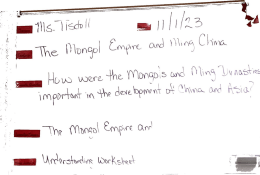 Ms. Tisdoll 11/1/23
The Mongol Empire and Ming China
How were the Mongols and Ming Dynasties
important in the development of China and Asia?
The Mongol Empire and
Understanding Worksheet